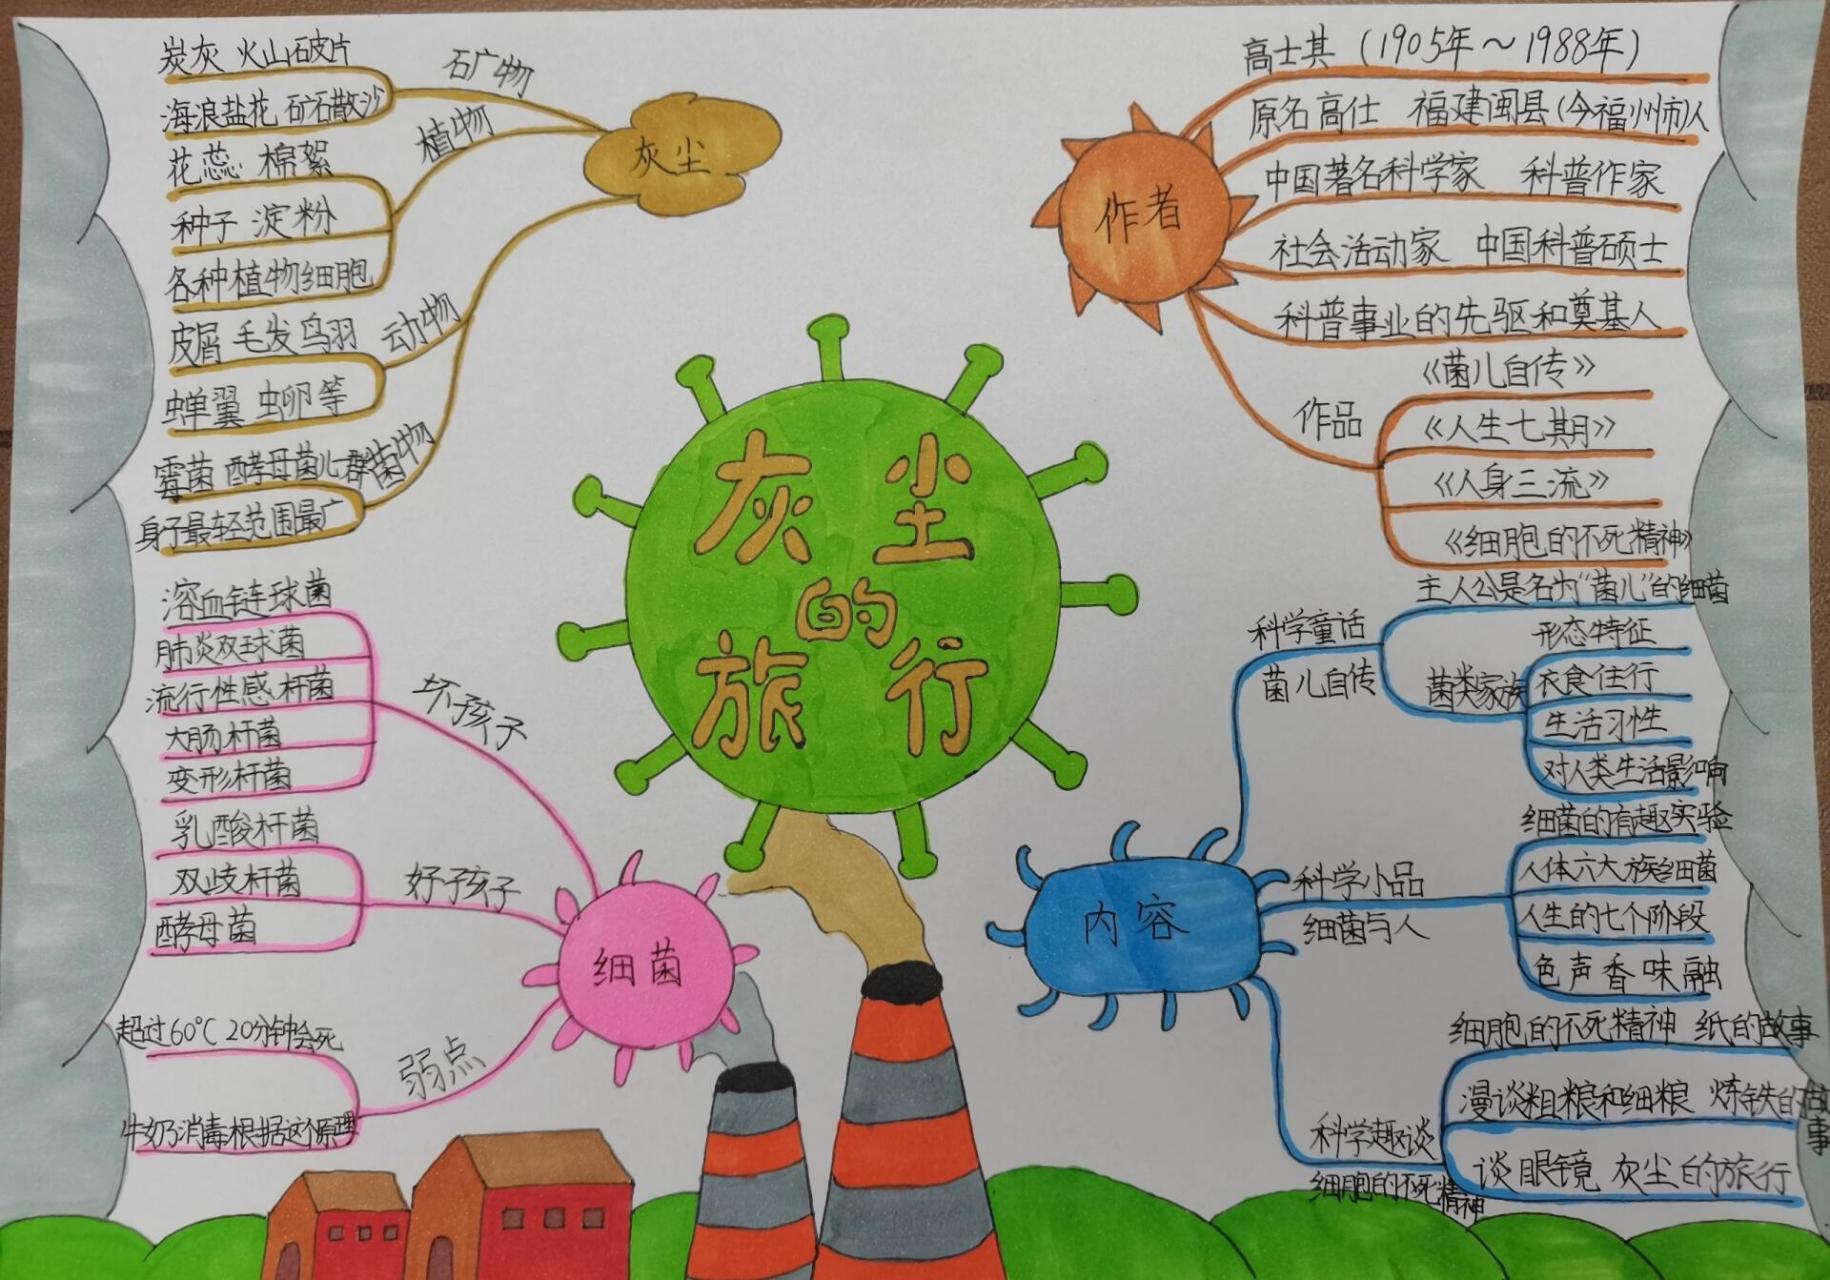 灰尘的旅行
灰尘
石广物
炭灰 火山石皮片
海浪盐花 矿石散沙
植物
花蕊 棉絮
种子 淀粉
各种植物细胞
动物
皮屑 毛发鸟羽
蝉翼 虫卵等
菌物
霉菌 酵母菌儿群
身子最轻范围最广
作者
高士其 (1905年～1988年)
原名高仕 福建闽县(今福州市)人
中国著名科学家 科普作家
社会活动家 中国科普硕士
科普事业的先驱和奠基人
作品
《菌儿自传》
《人生七期》
《人身三流》
《细胞的不死精神》
细菌
坏孩子
溶血链球菌
肺炎双球菌
流行性感杆菌
大肠杆菌
变形杆菌
好孩子
乳酸杆菌
双歧杆菌
酵母菌
弱点
超过60℃ 20分钟会死
牛奶消毒根据这个原理
内容
科学童话
菌儿自传
主人公是名为“菌儿”的细菌
菌类家族
形态特征
衣食住行
生活习性
对人类生活影响
科学小品
细菌与人
细菌的有趣实验
人体六大族细菌
人生的七个阶段
色声香味融
科学趣谈
细胞的不死精神
细胞的不死精神 纸的故事
漫谈粗粮和细粮 炼铁的故事
谈眼镜 灰尘的旅行